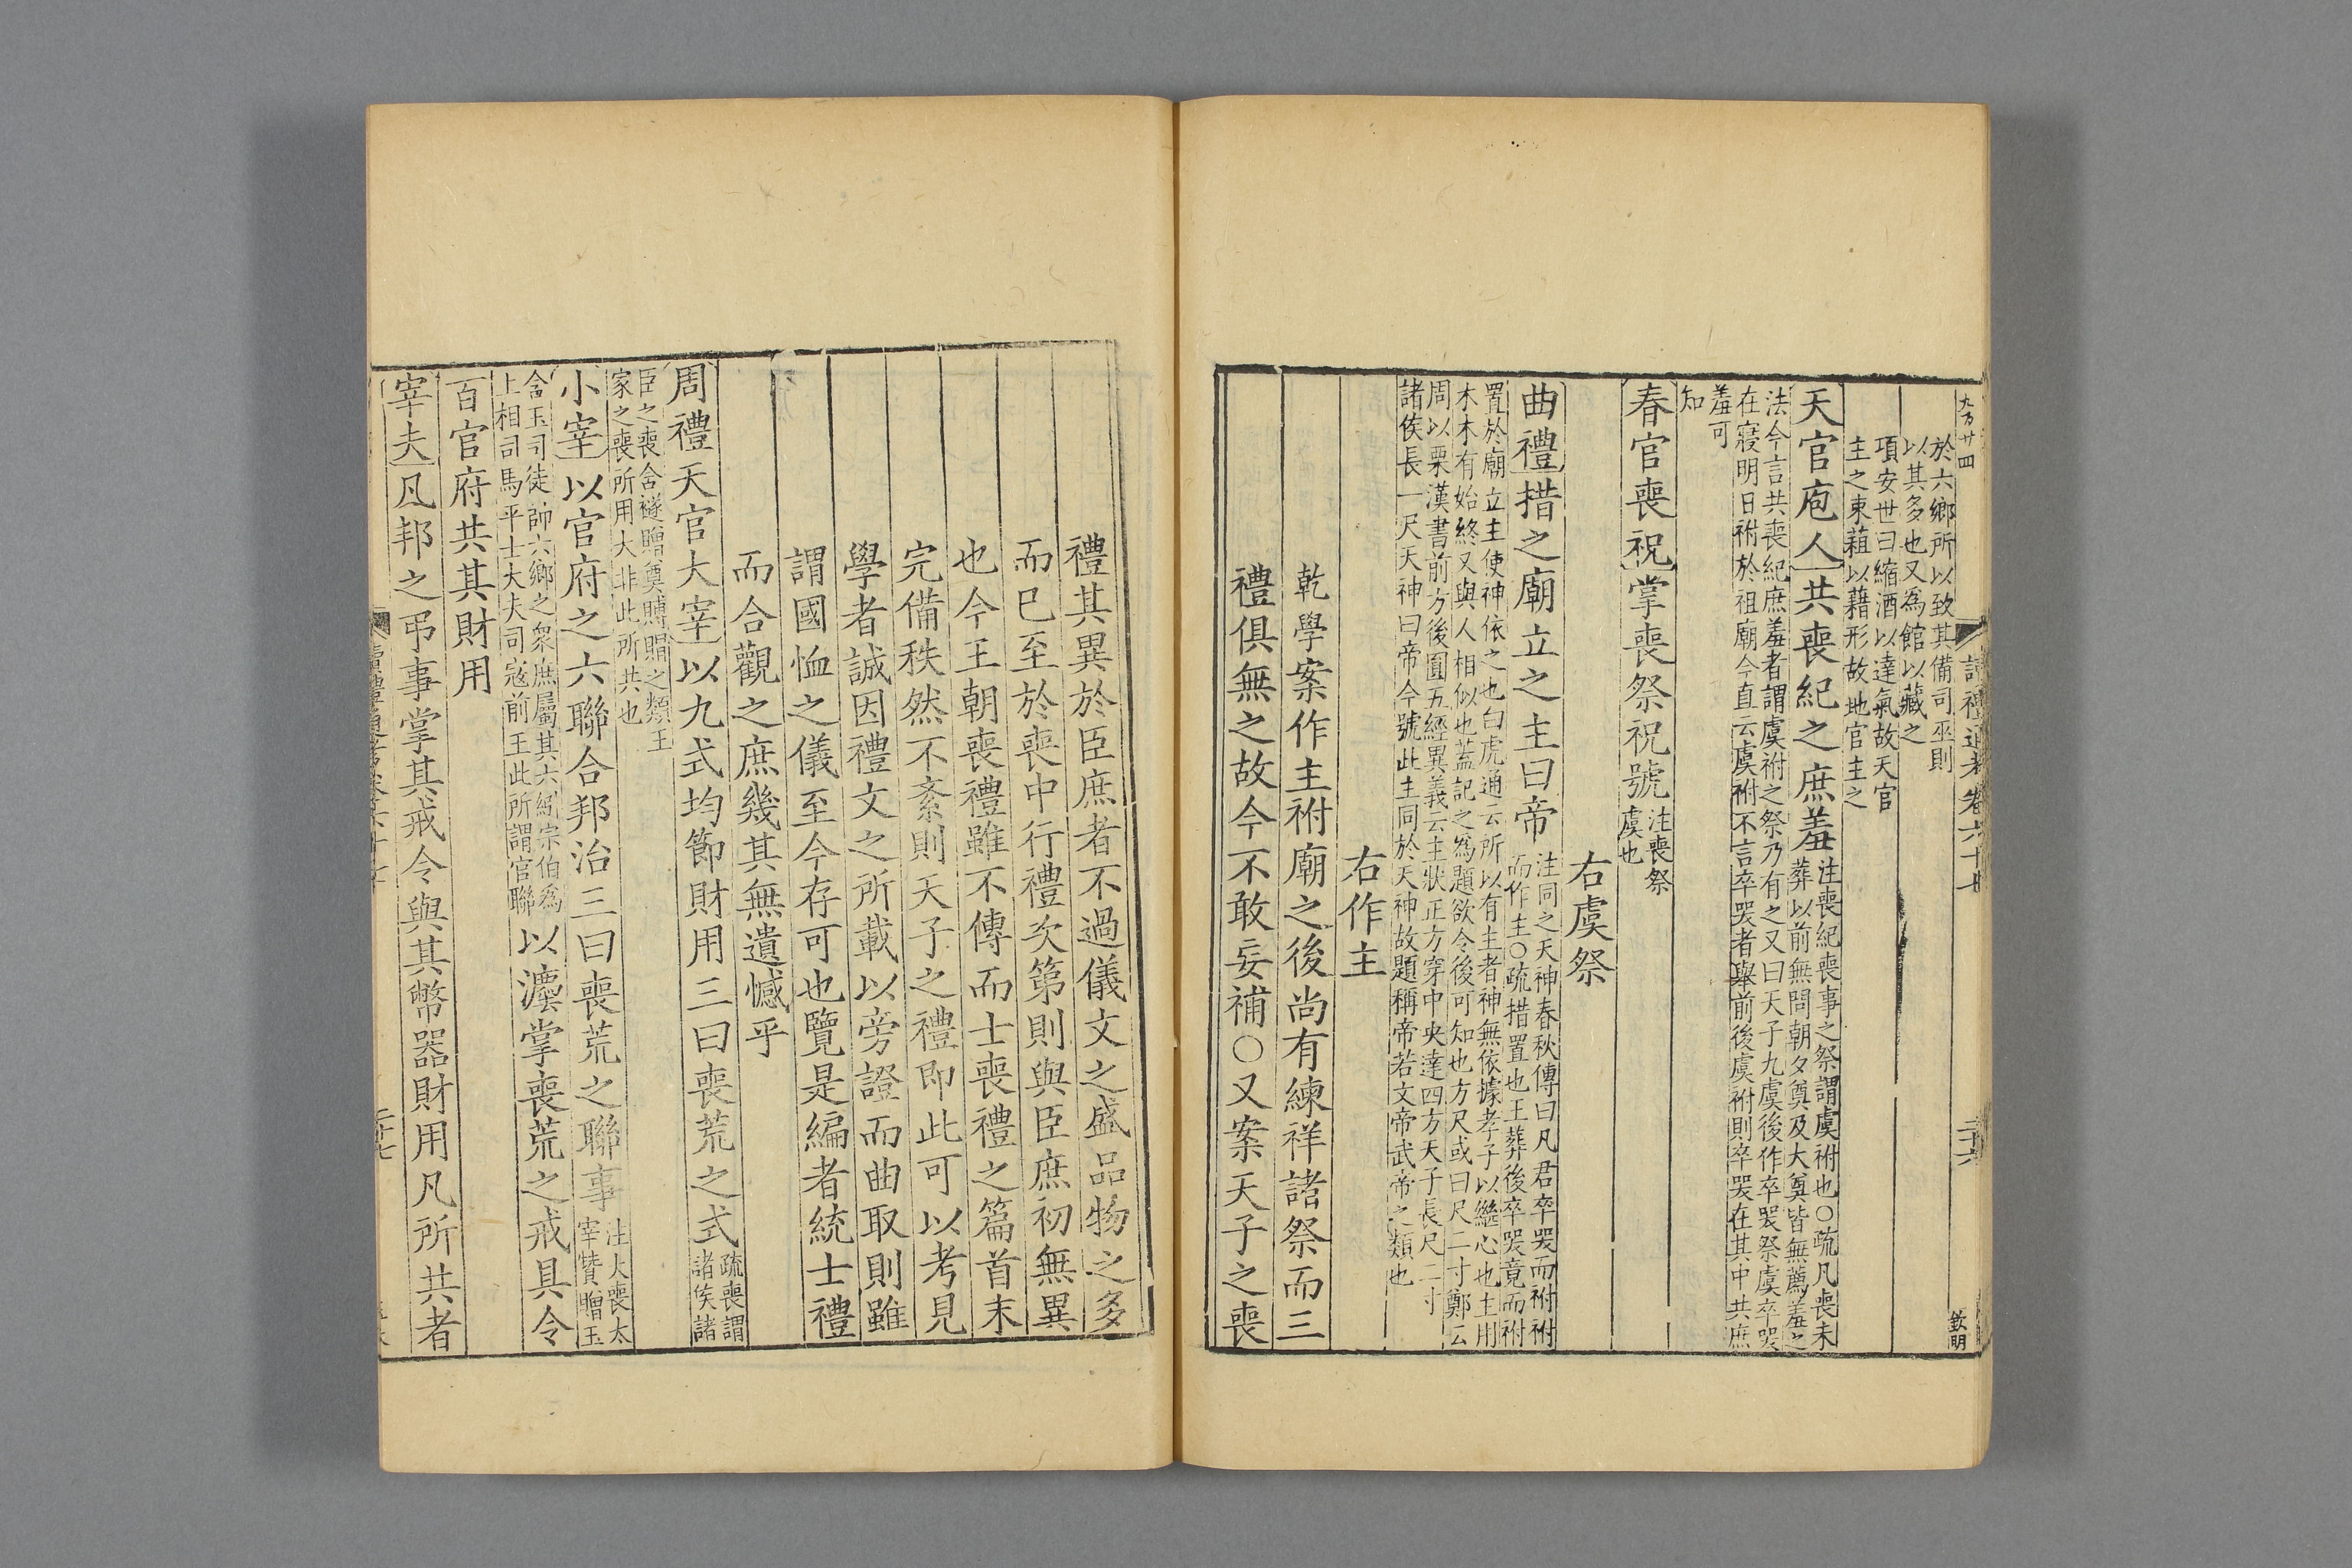 九百廿四
讀禮通考卷六十七
二十六
欽明
於六鄉所以致其備司巫則
以其多也又為館以藏之
項安世曰縮酒以達氣故天官
主之束蒩以藉形故地官主之
天官庖人共喪紀之庶羞
注喪紀喪事之祭謂虞祔也○疏凡喪未
葬以前無問朝夕奠及大奠皆無薦羞之
法今言共喪紀庶羞者謂虞祔之祭乃有之又曰天子九虞後作卒哭祭虞卒哭
在寢明日祔於祖廟今直云虞祔不言卒哭者舉前後虞祔則卒哭在其中共庶
羞可
知
春官喪祝掌喪祭祝號
注喪祭
虞也
右虞祭
曲禮措之廟立之主曰帝
注同之天神春秋傳曰凡君卒哭而祔祔
而作主○疏措置也王葬後卒哭竟而祔
置於廟立主使神依之也白虎通云所以有主者神無依據孝子以繼心也主用
木木有始終又與人相似也蓋記之為題欲令後可知也方尺或曰尺二寸鄭云
周以栗漢書前方後圓五經異義云主狀正方穿中央達四方天子長尺二寸
諸侯長一尺天神曰帝今號此主同於天神故題稱帝若文帝武帝之類也
右作主
乾學案作主祔廟之後尚有練祥諸祭而三
禮俱無之故今不敢妄補○又案天子之喪
禮其異於臣庶者不過儀文之盛品物之多
而已至於喪中行禮次第則與臣庶初無異
也今王朝喪禮雖不傳而士喪禮之篇首末
完備秩然不紊則天子之禮即此可以考見
學者誠因禮文之所載以旁證而曲取則雖
謂國恤之儀至今存可也覽是編者統士禮
而合觀之庶幾其無遺憾乎
周禮天官大宰以九式均節財用三曰喪荒之式
疏喪謂
諸侯諸
臣之喪含襚贈奠賻賵之類王
家之喪所用大非此所共也
小宰以官府之六聯合邦治三曰喪荒之聯事
注大喪太
宰贊贈玉
含玉司徒帥六鄉之眾庶屬其六紼宗伯為
上相司馬平士大夫司寇前王此所謂官聯
以灋掌喪荒之戒具令
百官府共其財用
宰夫凡邦之弔事掌其戒令與其幣器財用凡所共者
二十七